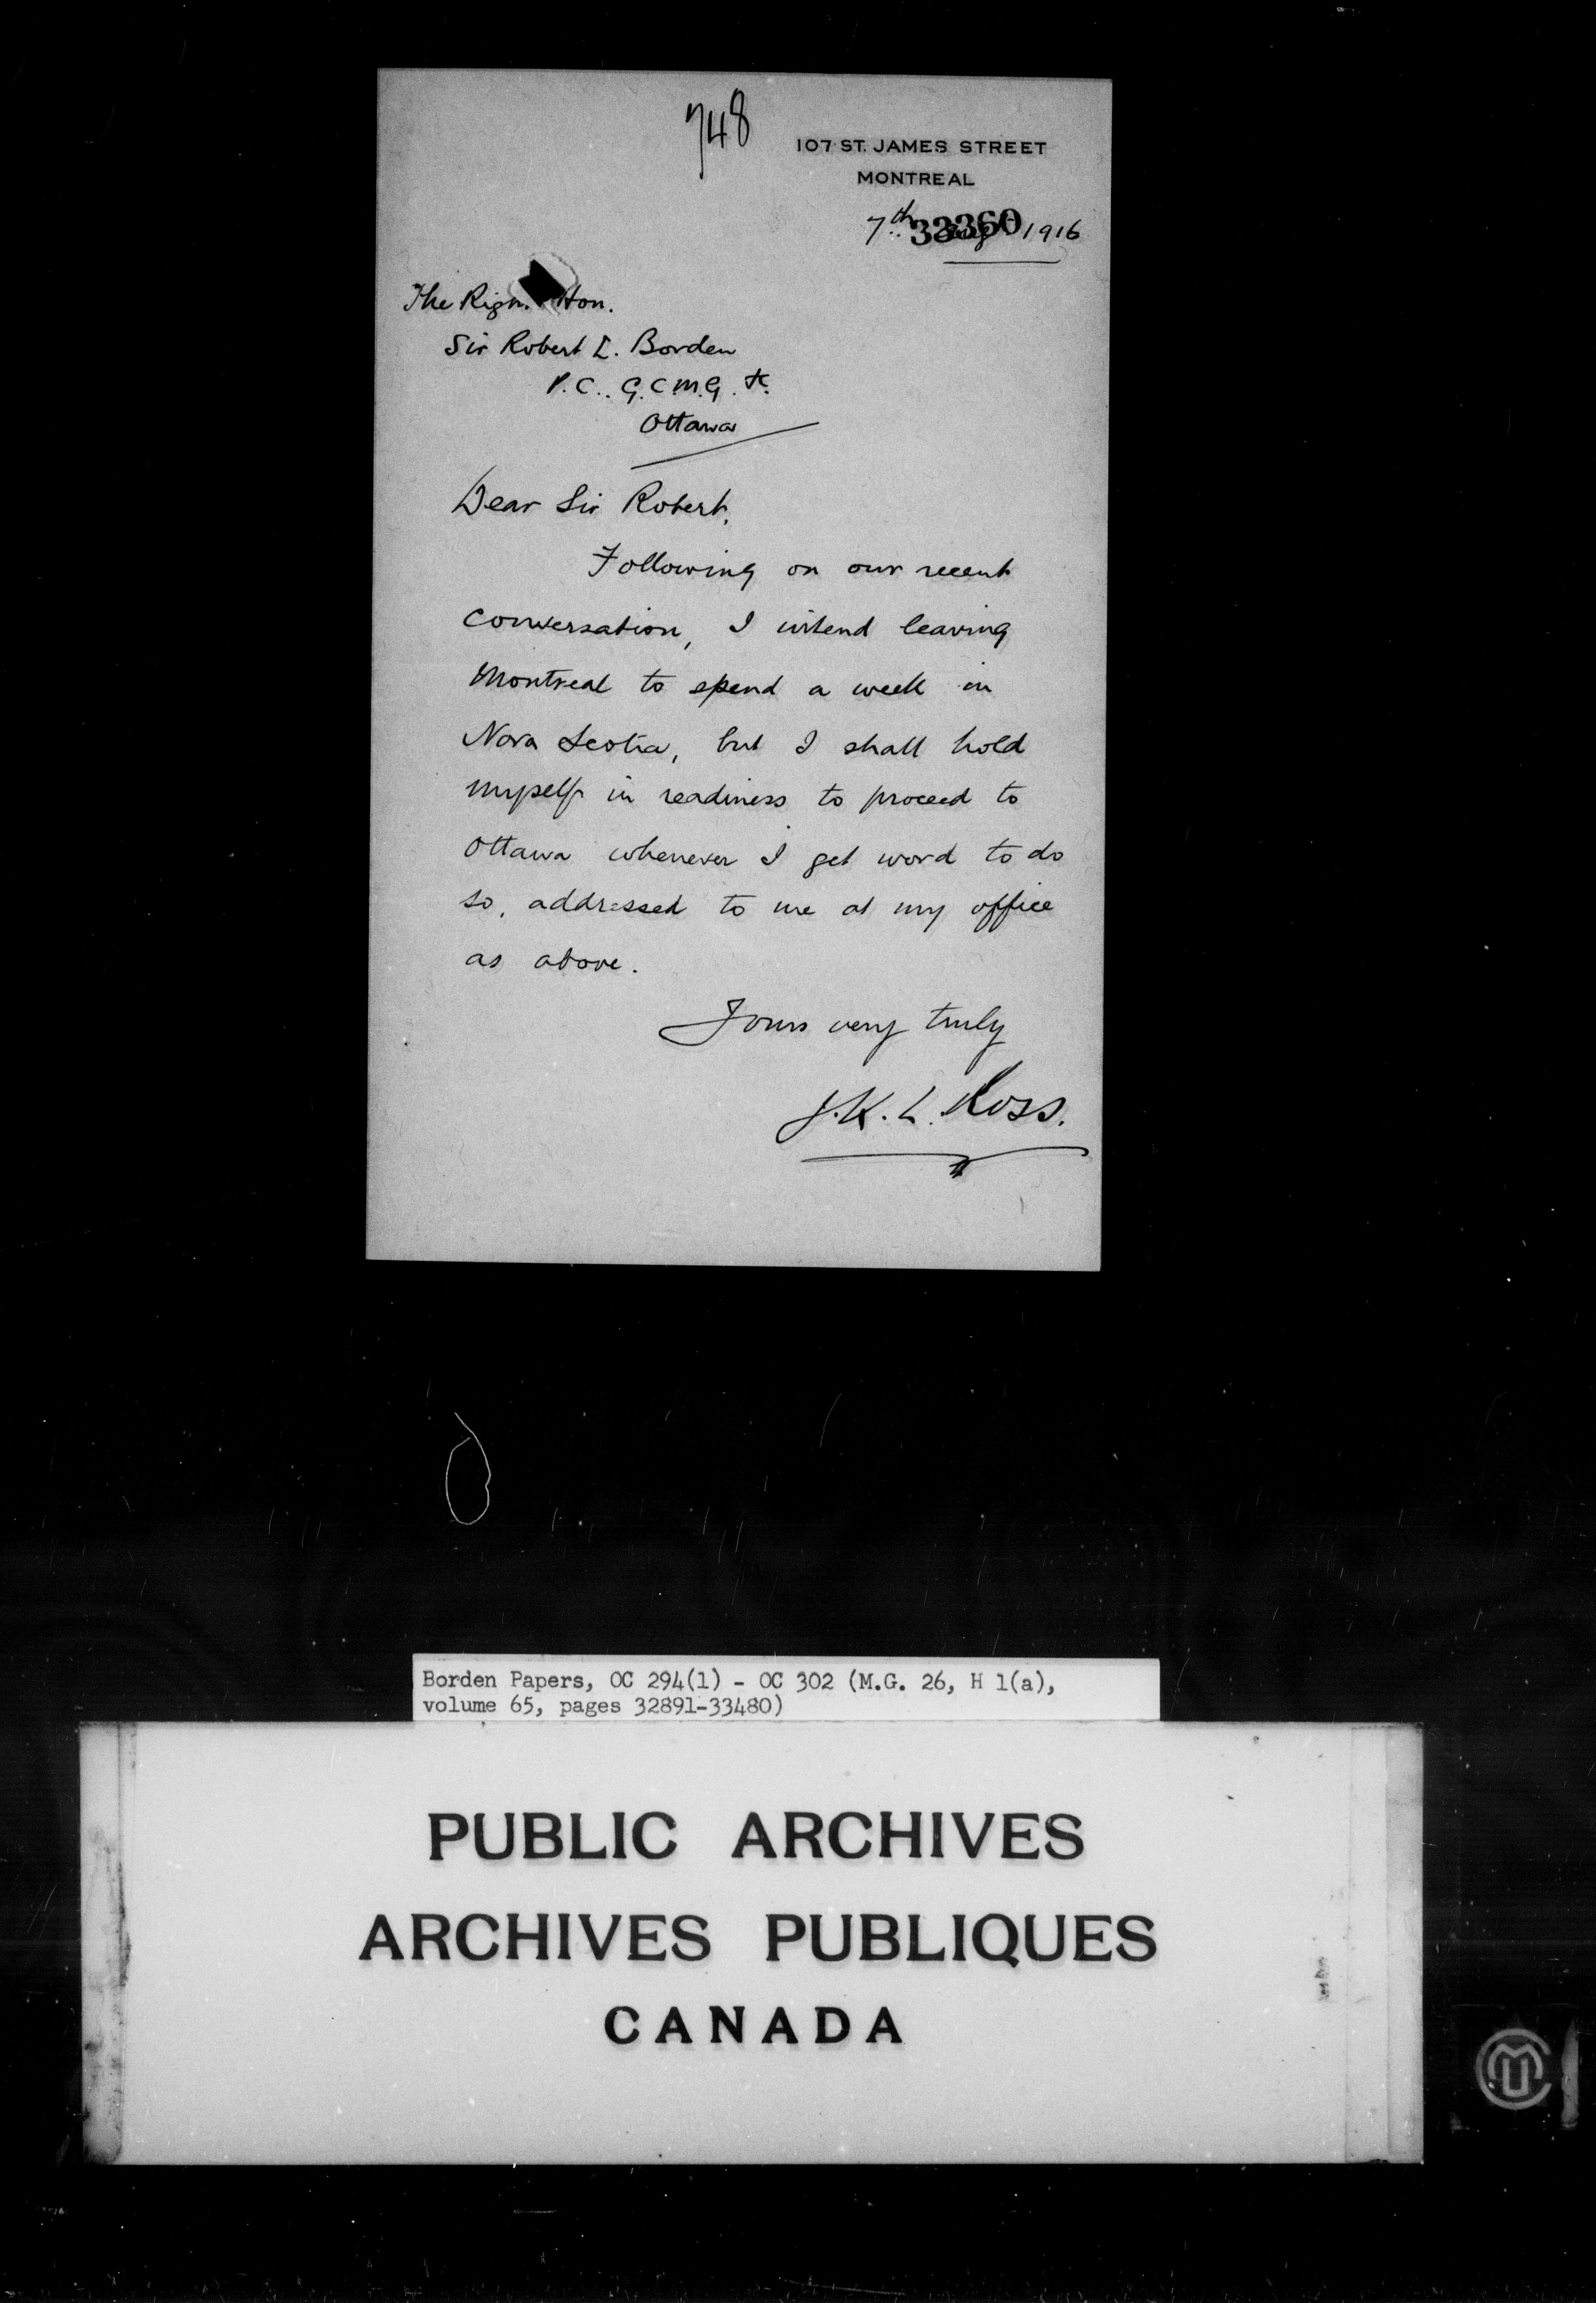 748
107 ST. JAMES STREET
MONTREAL
7th 33360 1916
The Righ. Hon.
Sir Robert L. Borden
P.C.. G.C.M.G.
Ottawa
Dear Sir Robert,
Following on our recent
conversation, I intend leaving
Montreal to spend a week in
Nova Scotia, but I shall hold
myself in readiness to proceed to
Ottawa whenever I get word to do
so, addressed to me at my office
as above.
Yours very truly
J.K.L. Ross.
Borden Papers, OC 294(1) - OC 302 (M.G. 26, H 1(a),
volume 65, pages 32891-33480)
PUBLIC ARCHIVES
ARCHIVES PUBLIQUES
CANADA